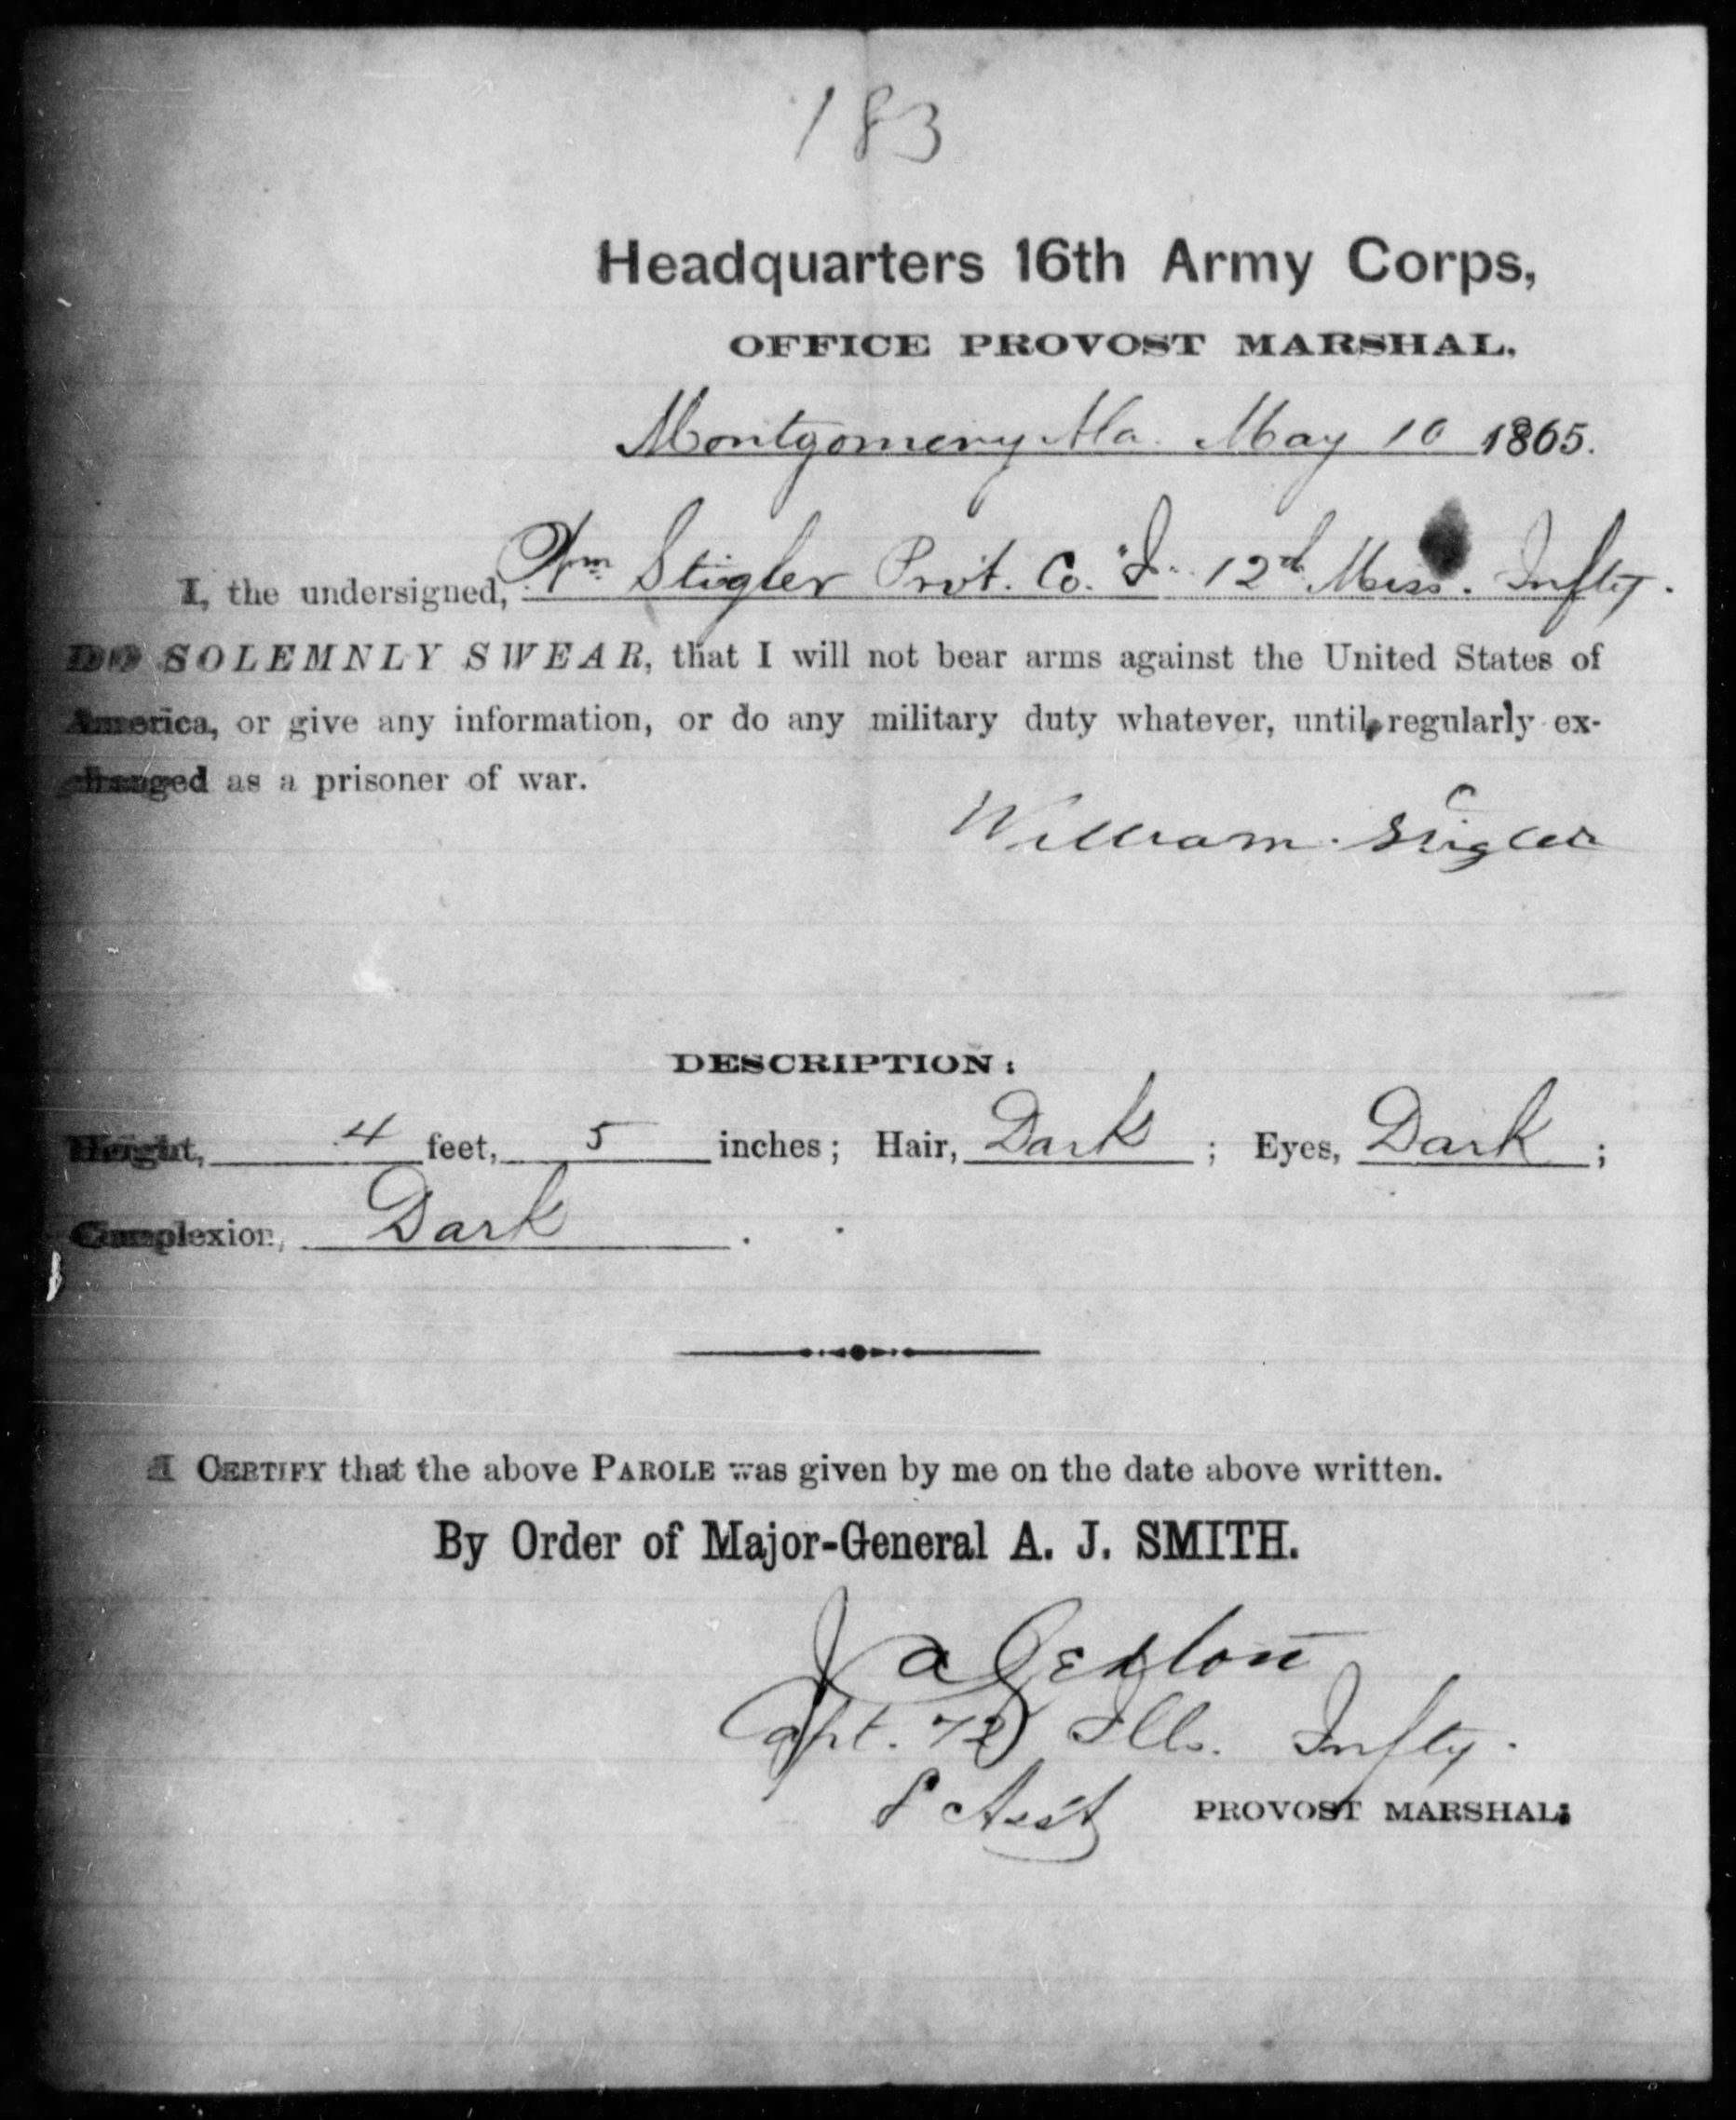 183
Headquarters 16th Army Corps,
OFFICE PROVOST MARSHAL.
Montgomery Ala. May 10 1865.
I, the undersigned, Wm Stigler Prvt. Co. "I" 12th Miss. Inftry.
DO SOLEMNLY SWEAR, that I will not bear arms against the United States of
America, or give any information, or do any military duty whatever, until regularly ex-
changed as a prisoner of war.
William Stigler
DESCRIPTION:
Height, 4 feet, 5 inches; Hair, Dark; Eyes, Dark;
Complexion, Dark.
I CERTIFY that the above PAROLE was given by me on the date above written.
By Order of Major-General A. J. SMITH.
J A Sexton
Capt. 72 Ills. Infty.
& Asst PROVOST MARSHAL.